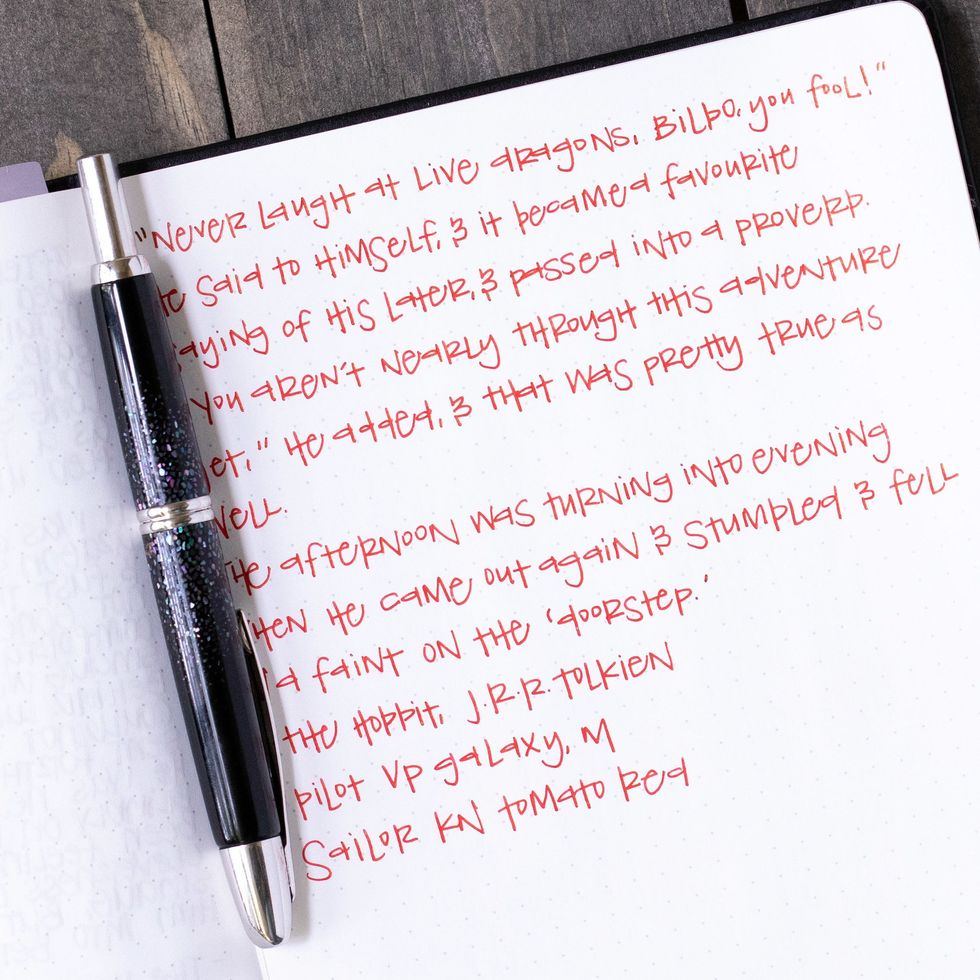 "Never laugh at live dragons, Bilbo, you fool!"
he said to himself, & it became a favourite
saying of his later, & passed into a proverb.
"You aren't nearly through this adventure
yet," he added, & that was pretty true as
well.
The afternoon was turning into evening
when he came out again & stumbled & fell
in a faint on the 'doorstep.'
The Hobbit, J.R.R. Tolkien
Pilot VP Galaxy, M
Sailor KN Tomato Red